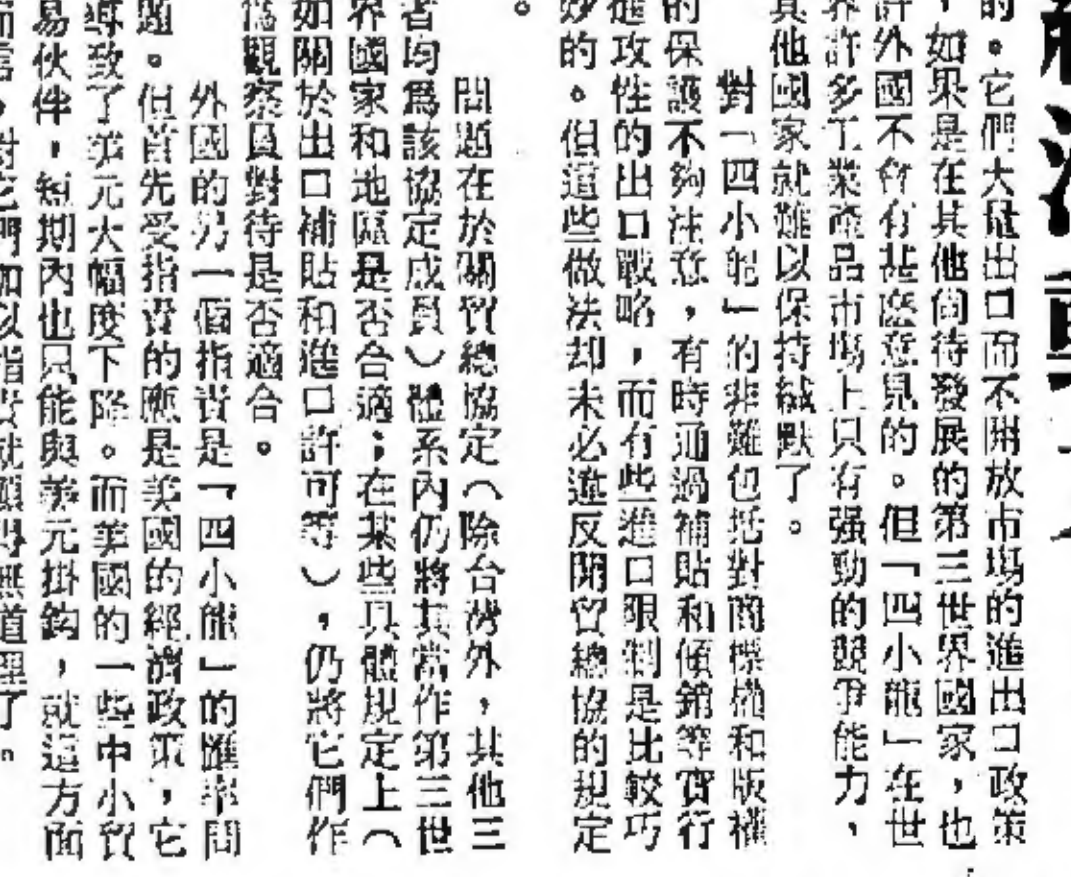 的。它們大量出口而不開放市場的進出口政策
，如果是在其他尙待發展的第三世界國家，也
許外國不會有甚麽意見的。但「四小龍」在世
界許多工業產品市場上只有强勁的競爭能力，
其他國家就難以保持緘默了。
對「四小龍」的非難也抵對商標權和版權
的保護不夠注意，有時通過補貼和傾銷等實行
進攻性的出口戰略，而有些進口限制是比較巧
妙的。但這些做法却未必違反關貿總協的規定
。
問題在於關貿總協定（除台灣外，其他三
者均爲該協定成員）體系內仍將其當作第三世
界國家和地區是否合適；在某些具體規定上（
如關於出口補貼和進口許可等），仍將它們作
爲觀察員對待是否適合。
外國的另一個指責是「四小龍」的匯率問
題。但首先受指責的應是美國的經濟政策，它
導致了美元大幅度下降。而美國的一些中小貿
易伙伴，短期內也只能與美元掛鈎，就這方面
而言，對它們加以指責就顯得無道理了。